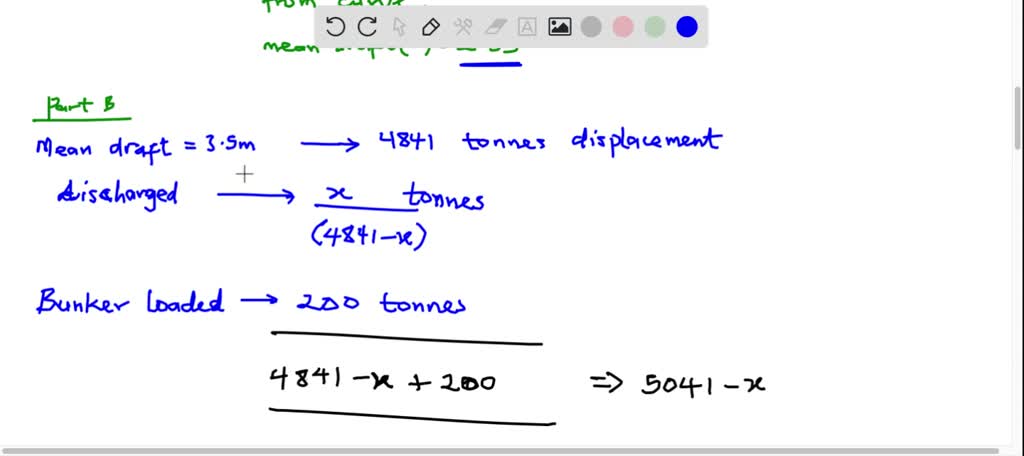 from
mean
Part B
Mean draft = 3.5m → 4841 tonnes displacement
discharged → x tonnes
(4841-x)
Bunker loaded → 200 tonnes
4841-x + 200 ⇒ 5041-x